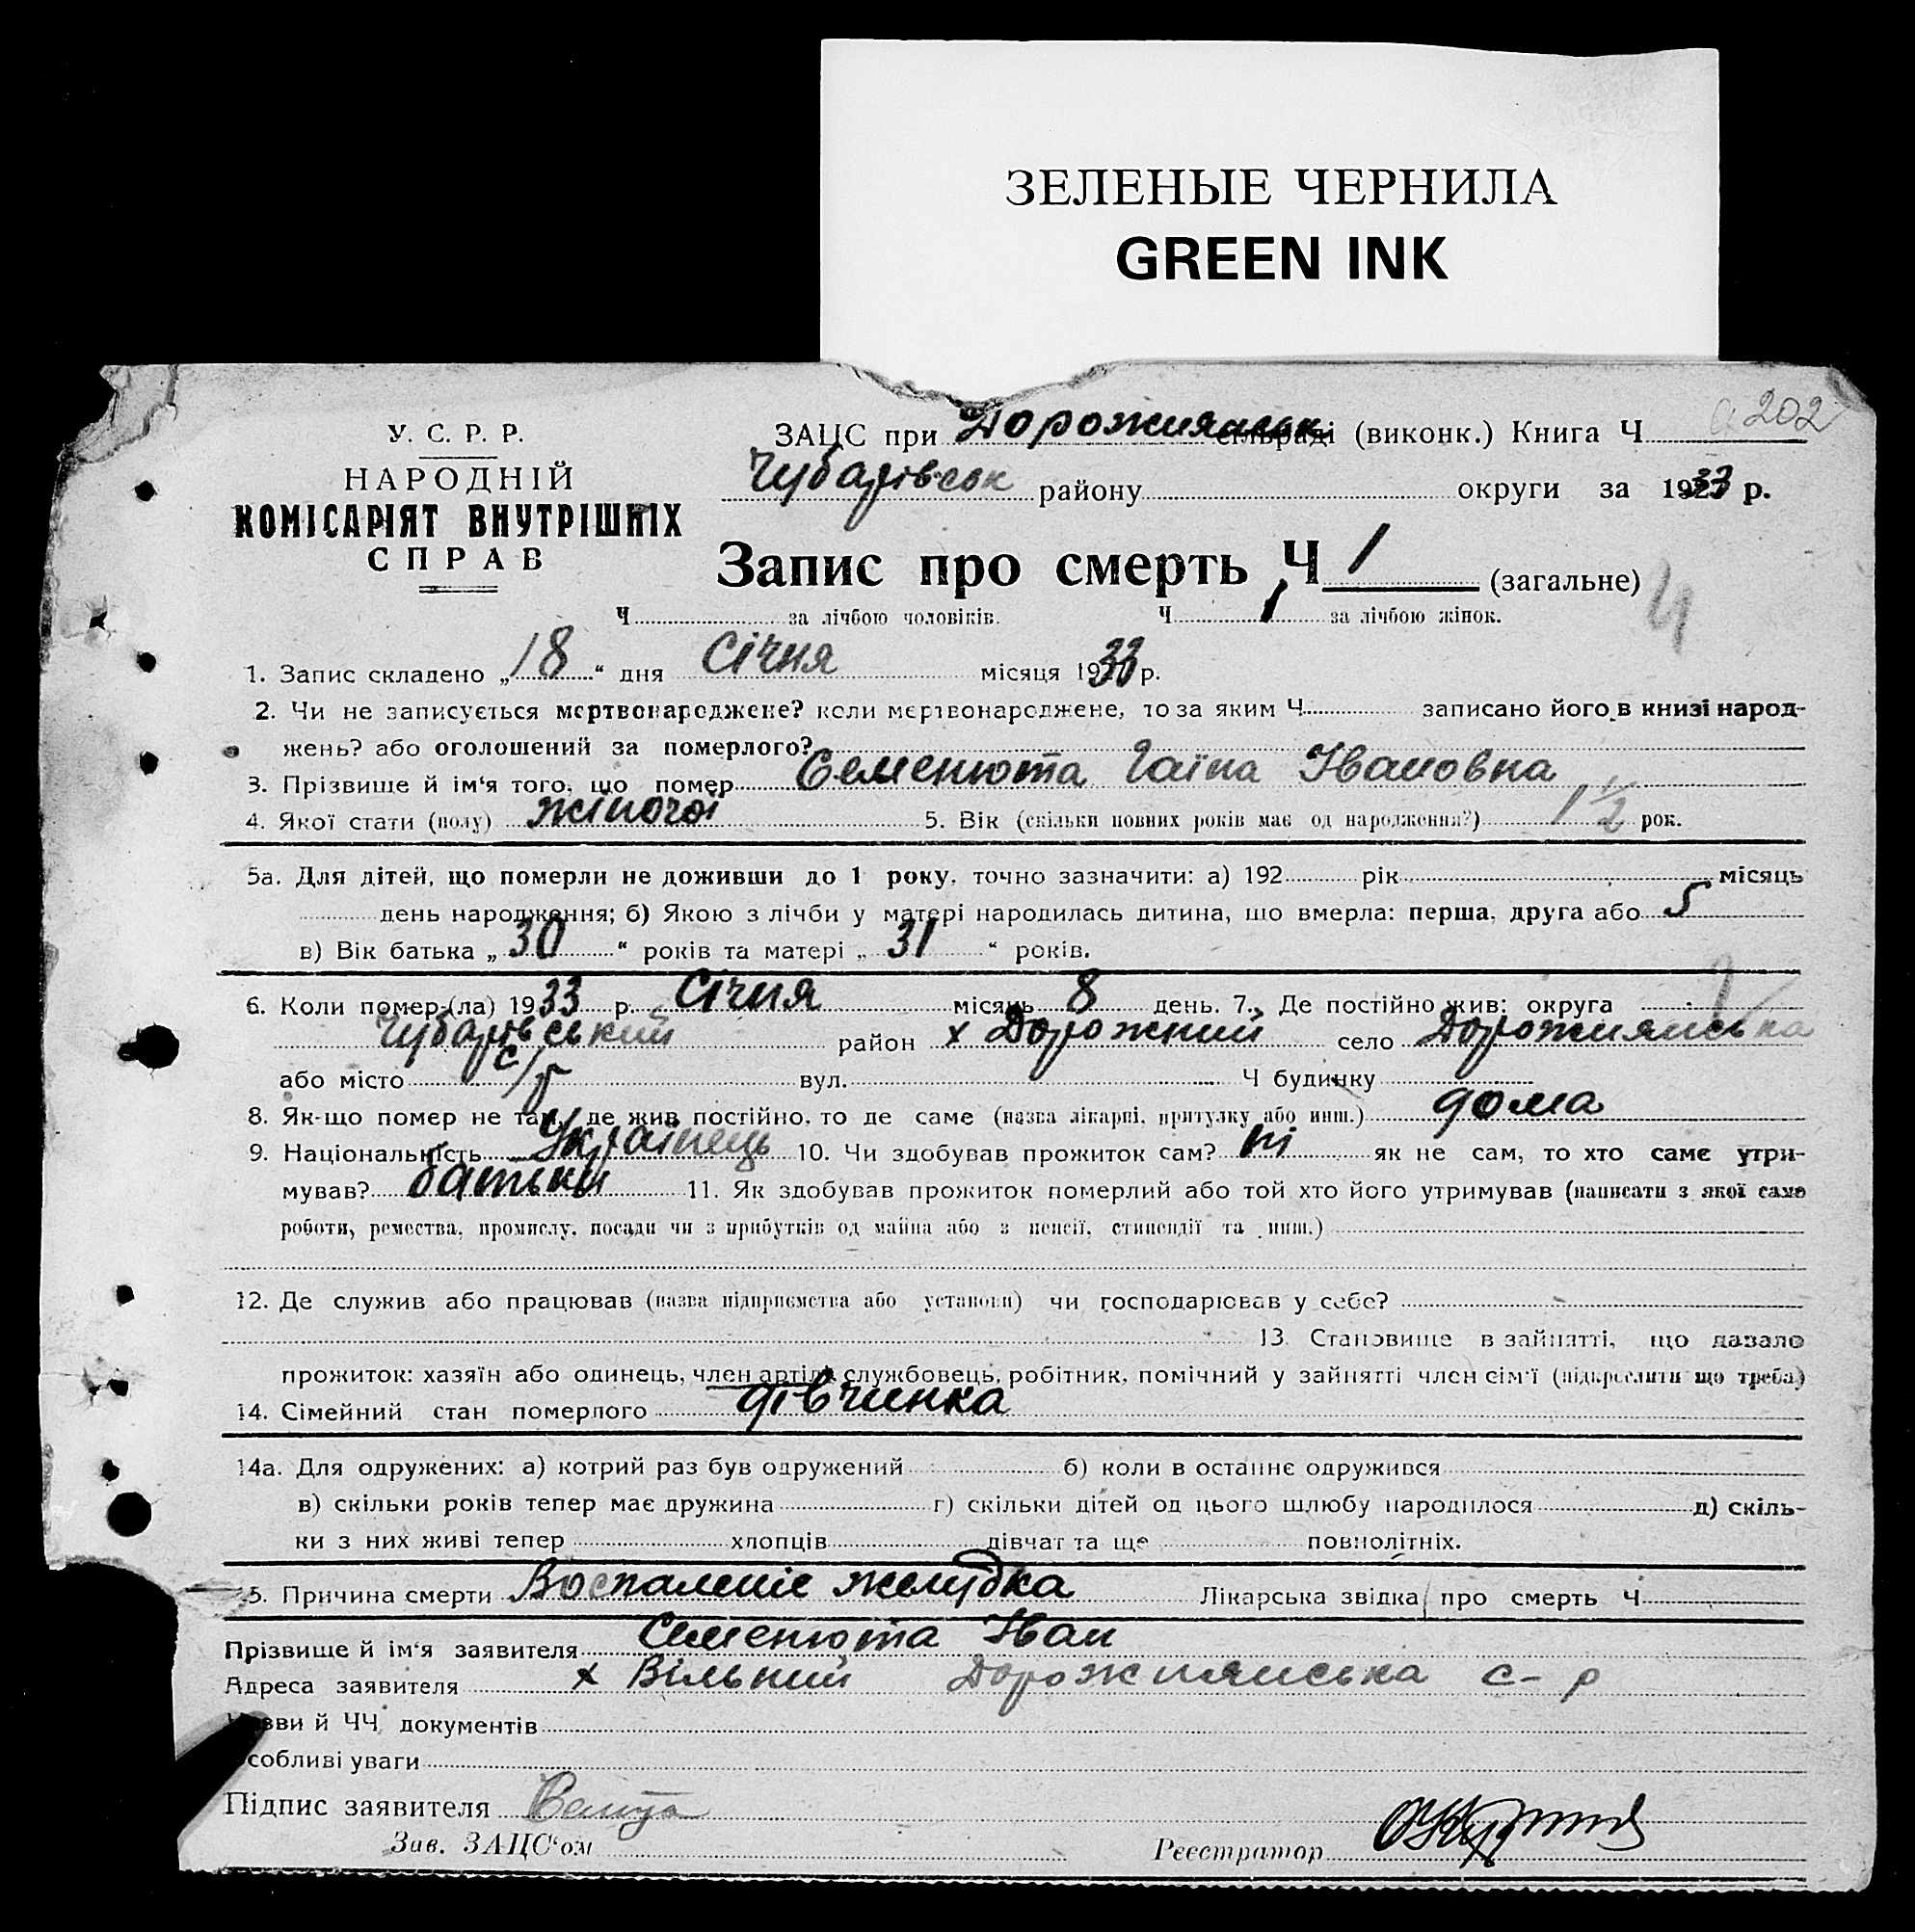 ЗЕЛЕНЫЕ ЧЕРНИЛА
GREEN INK
202
У. С. Р. Р.
НАРОДНІЙ
КОМІСАРІЯТ ВНУТРІШНІХ
СПРАВ
ЗАЦС при Дорожнянськ сільраді (виконк.) Книга Ч
Чубарівськ району округи за 1933 р.
Запис про смерть Ч 1 (загальне)
4
Ч за лічбою чоловіків. Ч 1 за лічбою жінок.
1. Запис складено „18“ дня Січня місяця 1933 р.
2. Чи не записується мертвонароджене? коли мертвонароджене, то за яким Ч записано його в книзі народ-
жень? або оголошений за померлого?
3. Прізвище й ім‘я того, що помер Семенюта Гаїна Івановна
4. Якої стати (полу) жіночої 5. Вік (скільки повних років має од народження?) 1 1/2 рок.
5а. Для дітей, що померли не доживши до 1 року, точно зазначити: а) 192 рік місяць
день народження; б) Якою з лічби у матері народилась дитина, що вмерла: перша, друга або 5
в) Вік батька „30“ років та матері „31“ років.
6. Коли помер-(ла) 1933 р. Січня місяць 8 день. 7. Де постійно жив: округа
Чубарівський район х Дорожний село Дорожнянська
або місто с/р вул. Ч будинку
8. Як-що помер не там, де жив постійно, то де саме (назва лікарні, притулку або инш.) дома
9. Національність Українець 10. Чи здобував прожиток сам? ні як не сам, то хто саме утри-
мував? батьки 11. Як здобував прожиток померлий або той хто його утримував (написати з якої саме
роботи, ремества, промислу, посади чи з прибутків од майна або з пенсії, стипендії та инш.)
12. Де служив або працював (назва підприємства або установи) чи господарював у себе?
13. Становище в зайнятті, що давало
прожиток: хазяїн або одинець, член артілі, службовець, робітник, помічний у зайнятті член сім‘ї (підкреслити що треба)
14. Сімейний стан померлого дівчинка
14а. Для одружених: а) котрий раз був одружений б) коли в останнє одружився
в) скільки років тепер має дружина г) скільки дітей од цього шлюбу народилося д) скіль-
ки з них живі тепер хлопців дівчат та ще повнолітніх.
15. Причина смерти Воспаленіє желудка Лікарська звідка про смерть Ч
Прізвище й ім‘я заявителя Семенюта Іван
Адреса заявителя х Вільний Дорожнянська с-р
Назви й ЧЧ документів
Особливі уваги
Підпис заявителя
Зав. ЗАЦС‘ом Реєстратор